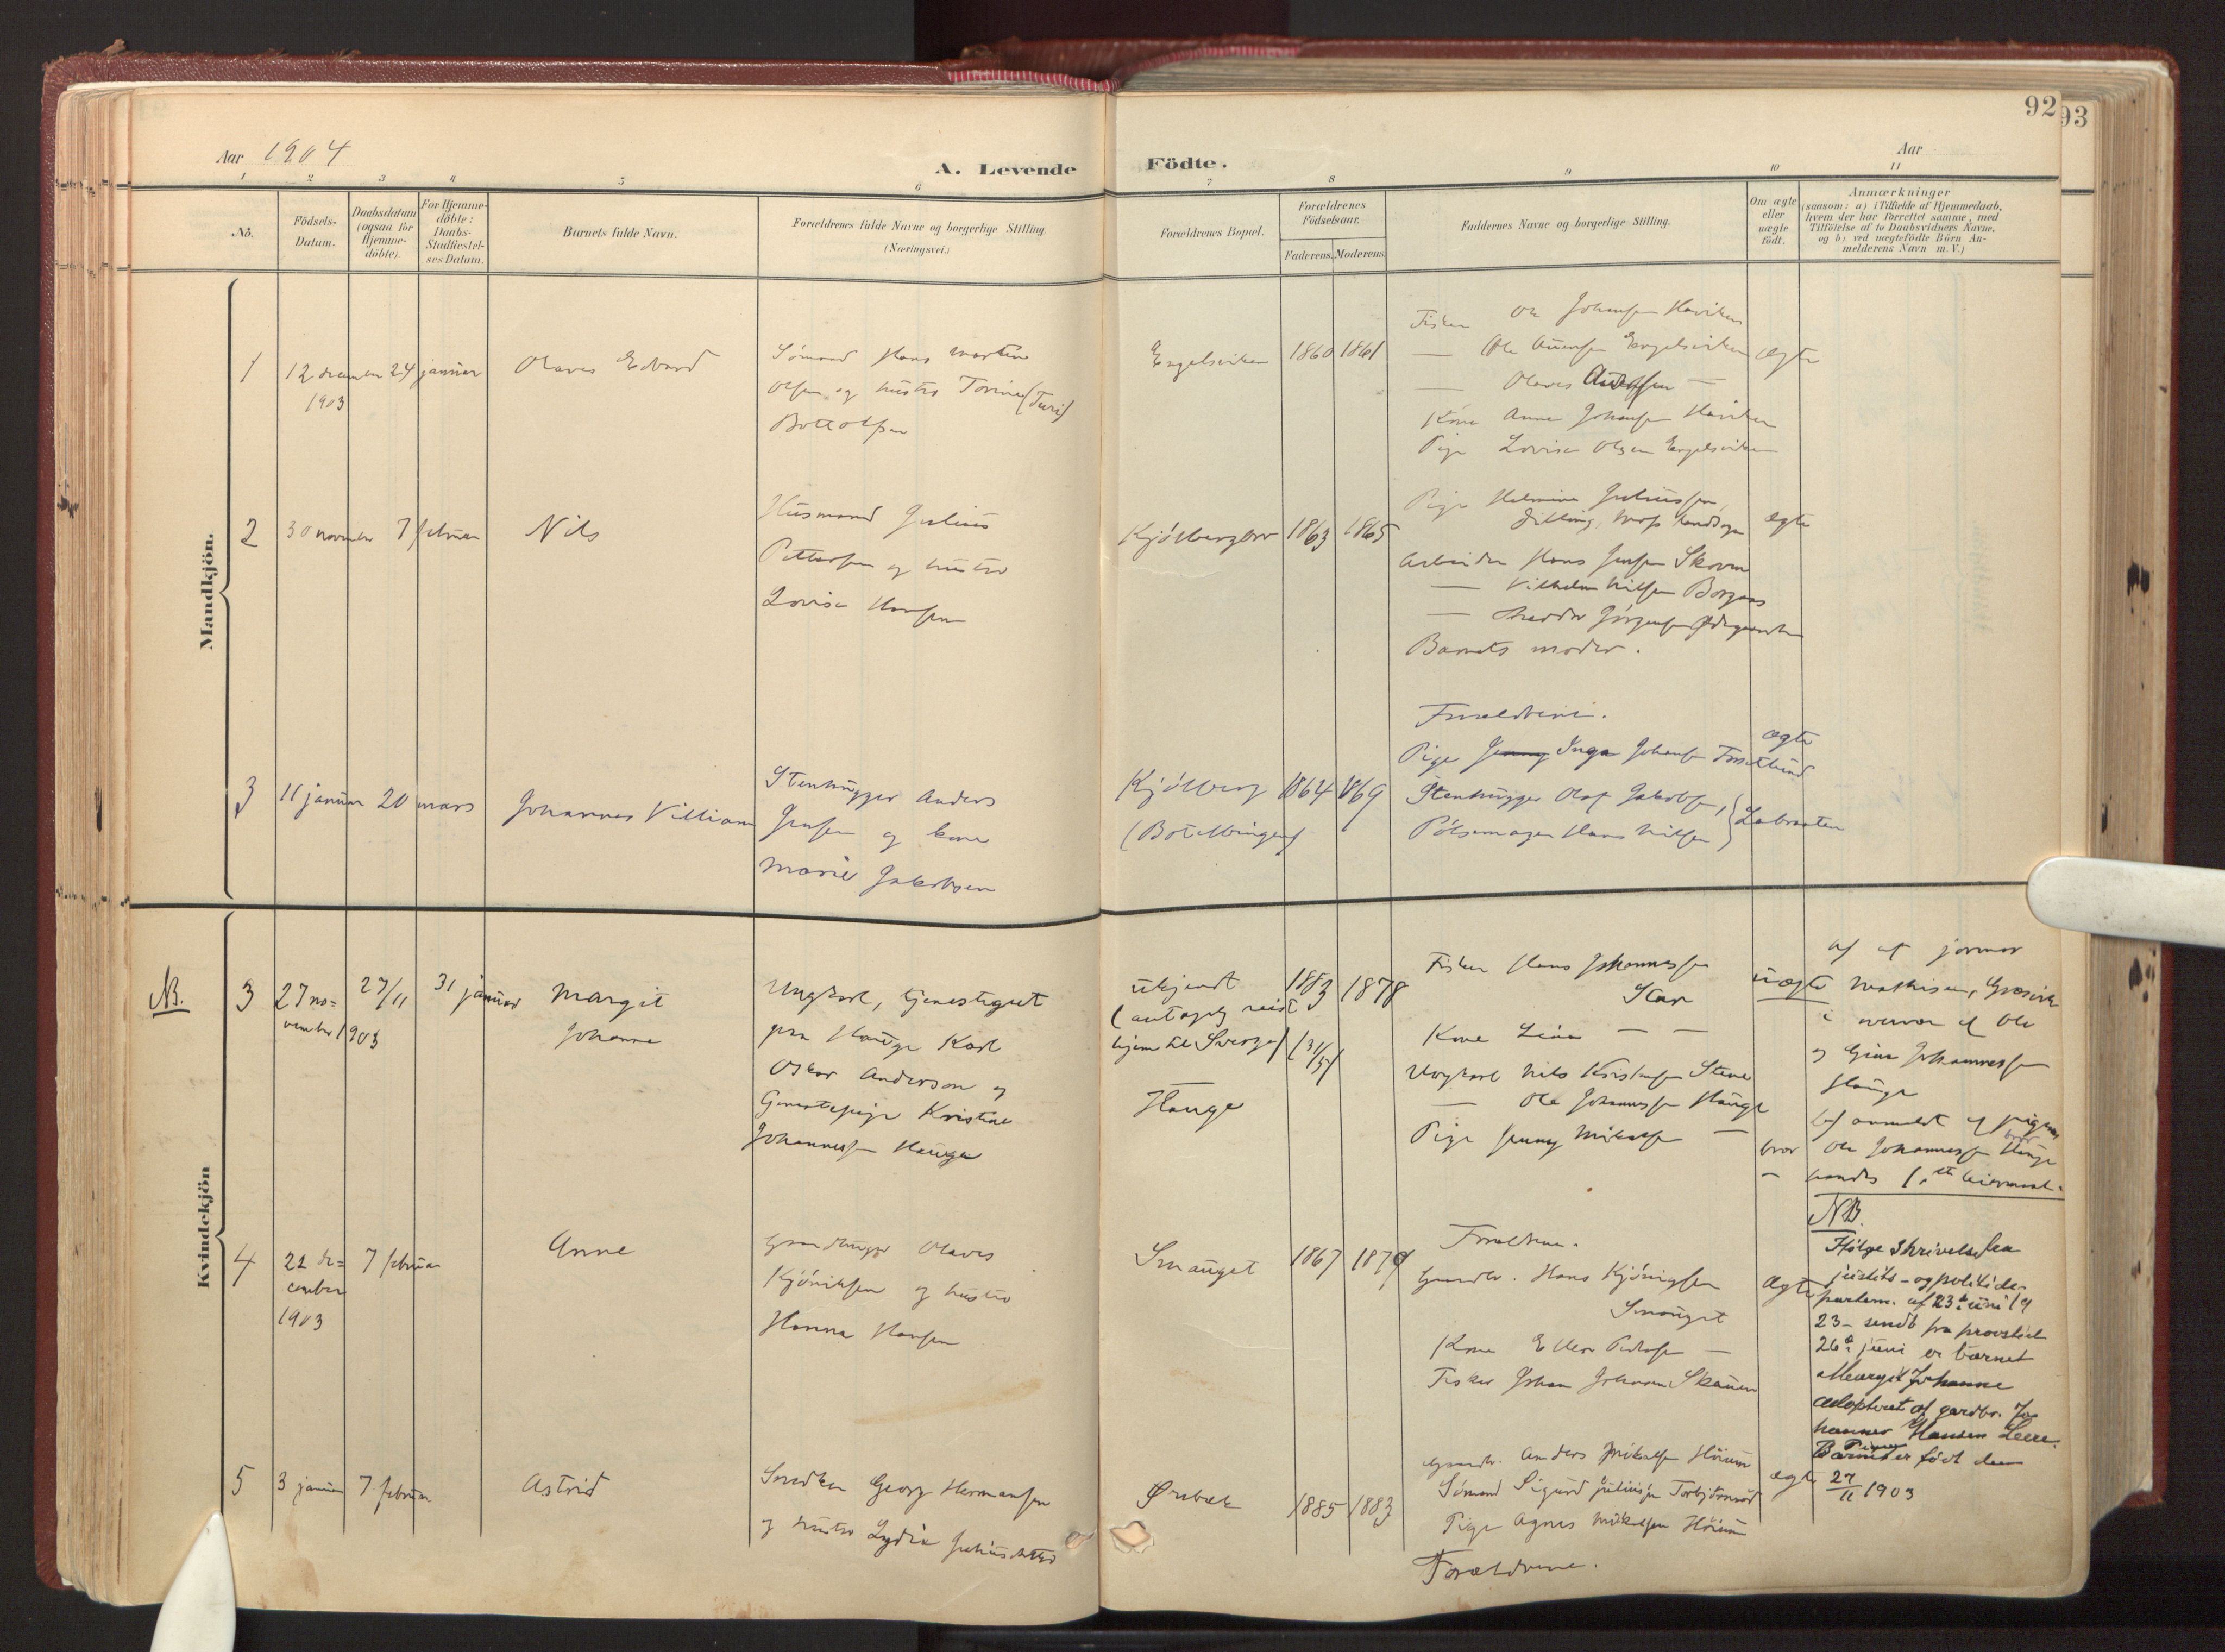 92
93
Aar 1904
A. Levende
Födte.
Aar
1 2 3 4 5 6 7 8 9 10 11
No.
Födsels-
Datum.
Daabsdatum
(ogsaa for
Hjemme-
döbte).
For Hjemme-
döbte:
Daabs-
Stadfæstel-
ses Datum.
Barnets fulde Navn.
Forældrenes fulde Navne og borgerlige Stilling.
(Næringsvei.)
Forældrenes Bopæl.
Forældrenes
Födselsaar.
Faderens. Moderens.
Faddernes Navne og borgerlige Stilling.
Om ægte
eller
uægte
födt.
Anmærkninger
(saasom: a) i Tilfælde af Hjemmedaab,
hvem der har forrettet samme, med
Tilföielse af to Daabsvidners Navne,
og b) ved uægtefödte Börn An-
melderens Navn m. V.)
Mandkjön.
1
12 december
1903
24 januar
Olaves Edvard
Sömand Hans Martin
Olsen og hustro Torine (Turi)
Bottolfsen
Engelsviken
1860 1861
Fisker Ole Johansen Haviken
— Ole Engelsviken
— Olaves —
Kone Anne Johansen
Pige Lovise Olsen Engelsviken
ægte
2
30 november
7 februar
Nils
Husmand Julius
Pettersen og hustro
Lovise Hansen
Kjölbergør
1863 1865
Pige Helmine Juliussen,
Dilling, Moss landsogn
Arbeider Hans Jensen Skoven
— Vilhelm Nilsen Borgaas
— Jörgensen
Barnets moder.
ægte
3
11 januar
20 mars
Johannes Villiam
Stenhugger Anders
Jensen og kone
Marie Jakobsen
Kjölberg
1864 1869
Forældrene.
Pige Jenny Inga Johansen
Stenhugger Olaf Jakobsen,
Pölsemager Hans Nilsen } Labraaten
ægte
Kvindekjön
NB.
3
27 no=
vember 1903
27/11
31 januar
Margit
Johanne
Ungkarl, tjenestegut
paa Hauge Karl
Oskar Anderson og
Pige Kristine
Johannessen Hauge
ukjendt
(antagelig reist
hjem til Sverige)
Hauge
1883
(31/5)
1878
Fisker Hans Johannessen
Stene
Kone Lina — —
Ungkarl Nils Kristensen Stene
— Ole Johannessen Hauge
Pige Jenny Mikalsen —
uægte
a) af jormor
Mathisen, Græsvik
i nærvær af Ole
og Gina Johannessen
Hauge
b) anmeldt af pigens
bror Ole Johannessen Hauge
NB.
Ifölge skrivelse fra
justits- og politide-
partem. af 23de juni 19
23 - sendt fra provstiet
26de juni er barnet
Margit Johanne
adopteret af gardbr. Jo-
hannes Hansen
Barnet er födt den
27/11 1903
4
22 de=
cember
1903
7 februar
Anne
Olaves
Kjöniksen og hustro
Hanna Hansen
Smauget
1867 1879
Forældrene.
Gaardbr. Hans Kjönigsen
Smauget
Kone Ellen Pedersen —
Fisker Johan Johansen
ægte
5
3 januar
7 februar
Astrid
Snedker Georg Hermansen
og hustro Lydia Juliusdatter
Ørebæk
1885 1883
Gaardbr. Anders Mikalsen Höium
Sömand Sigurd Juliussen Torbjörnsröd
Pige Agnes Mikalsen Höium
Forældrene.
ægte